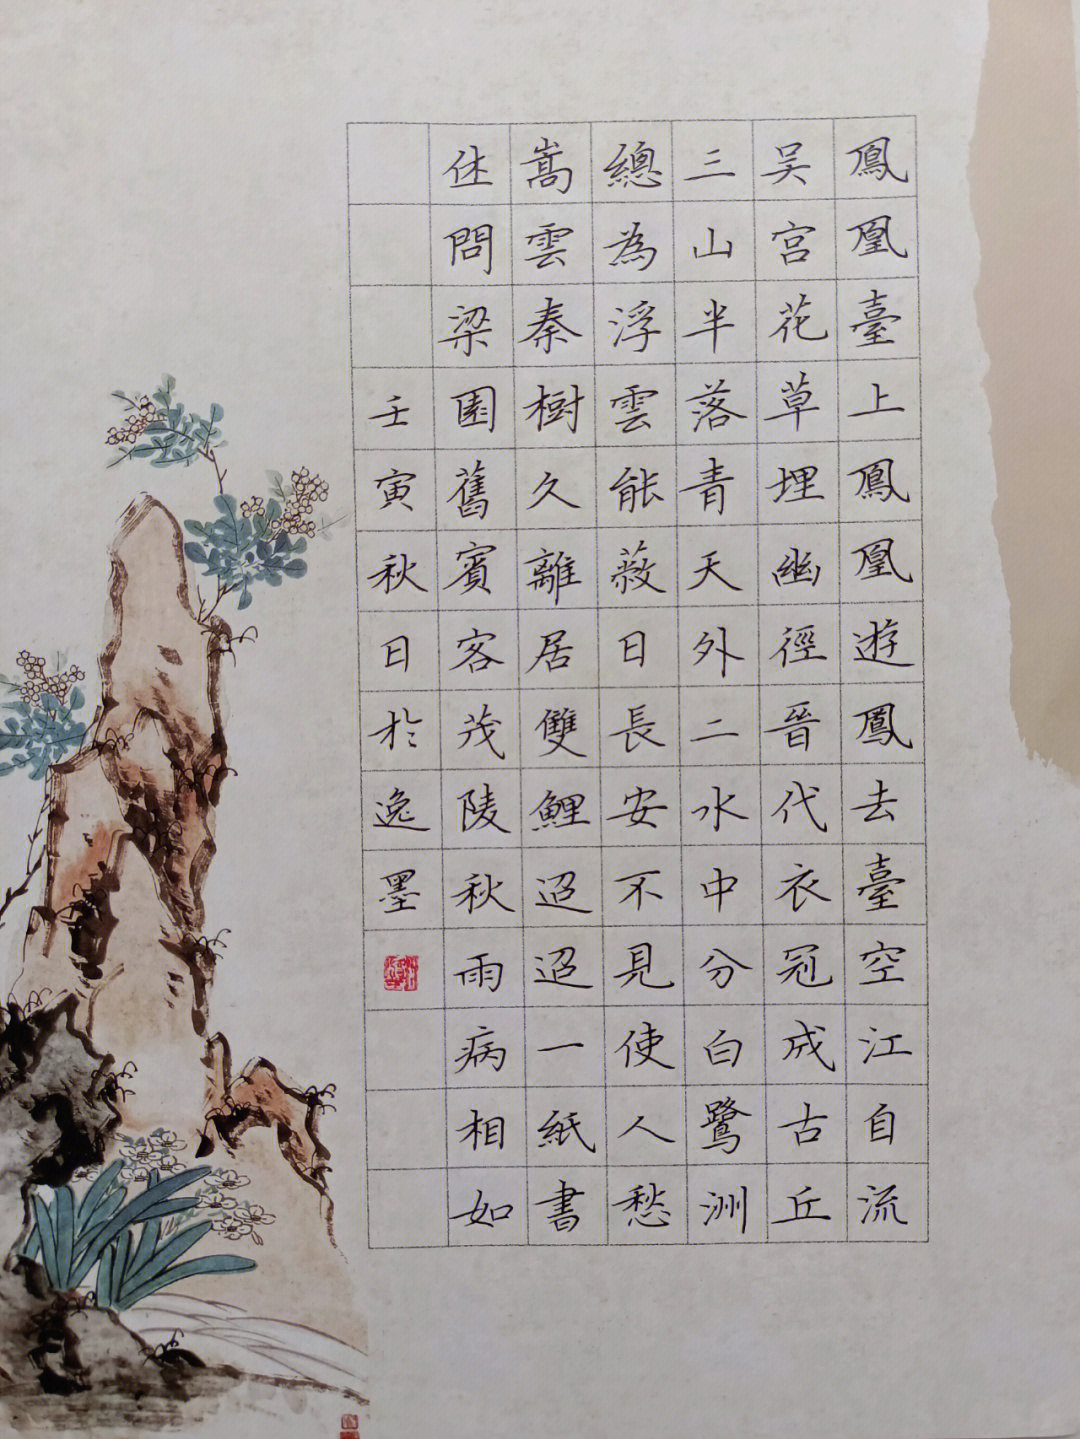 鳳凰臺上鳳凰遊鳳去臺空江自流
吴宫花草埋幽徑晉代衣冠成古丘
三山半落青天外二水中分白鷺洲
總為浮雲能蔽日長安不見使人愁
嵩雲秦樹久離居雙鯉迢迢一紙書
休問梁園舊賓客茂陵秋雨病相如
壬寅秋日於逸墨